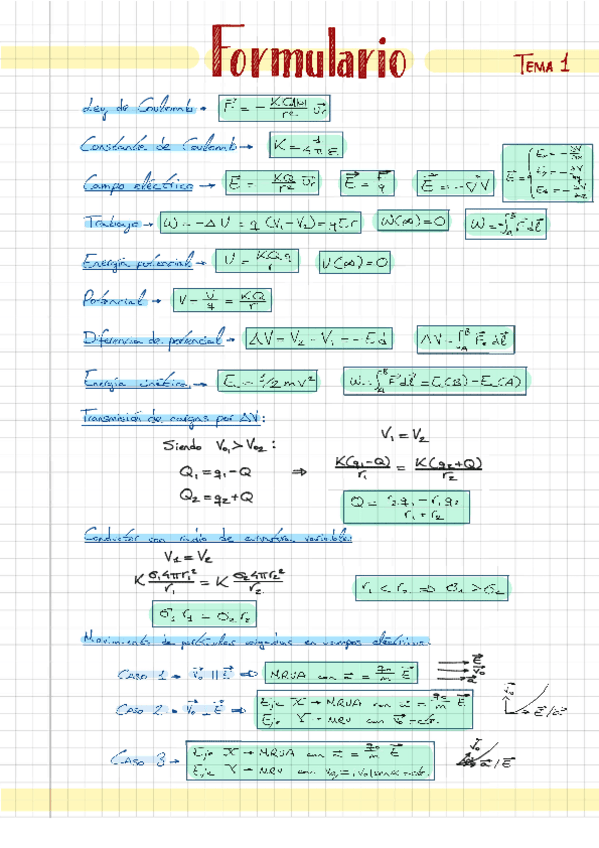 Formulario TEMA 1
Ley de Coulomb → F⃗ = - KQ r² u⃗r
Constante de Coulomb → K = 1/4π
Campo eléctrico → E⃗ = KQ/r² u⃗r E⃗ = F⃗/q E⃗ = -∇⃗V
Trabajo → W = -ΔU = q (V₁-V₂) = qEr W(∞)=0 W =
Energía potencial → U = KQq/r U(∞)=0
Potencial → V = U/q = KQ/r
Diferencia de potencial → ΔV = V₂ - V₁ = -Ed ΔV
Energía cinética → Ec = 1/2 mv² W = ∫ F⃗dl⃗ = Ec(B) - Ec(A)
Transmisión de cargas por ΔV:
Siendo V₀₁ > V₀₂ : V₁ = V₂
Q₁ = q₁ - Q ⇒ K(q₁-Q)/r₁ = K(q₂+Q)/r₂
Q₂ = q₂ + Q Q = r₂q₁ - r₁q₂ / r₁ + r₂
Conductor con radio de curvatura variable:
V₁ = V₂
K σ₁4πr₁²/r₁ = K σ₂4πr₂²/r₂ r₁ < r₂ ⇒ σ₁ > σ₂
σ₁ r₁ = σ₂ r₂
Movimiento de partículas cargadas en campos eléctricos:
CASO 1 → v⃗₀ || E⃗ ⇒ MRUA con a⃗ = q/m E⃗ E⃗ v⃗₀
CASO 2 → v⃗₀ ⊥ E⃗ ⇒ Eje X → MRUA con a⃗ = q/m E⃗
Eje Y → MRU con v⃗₀ = cte. E⃗/a⃗
CASO 3 → Eje X → MRUA con a⃗ = q/m E⃗ v⃗₀ a⃗/E⃗
Eje Y → MRU con